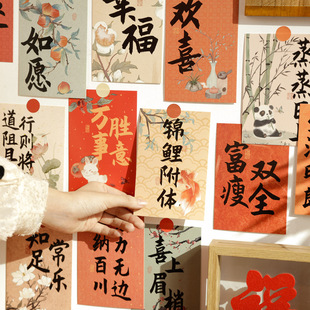 如愿
福
欢喜
蒸蒸日
道阻且
行则将
万事
胜意
锦鲤附体
富瘦
双全
知足
常乐
纳百川
力无边
喜上
眉梢